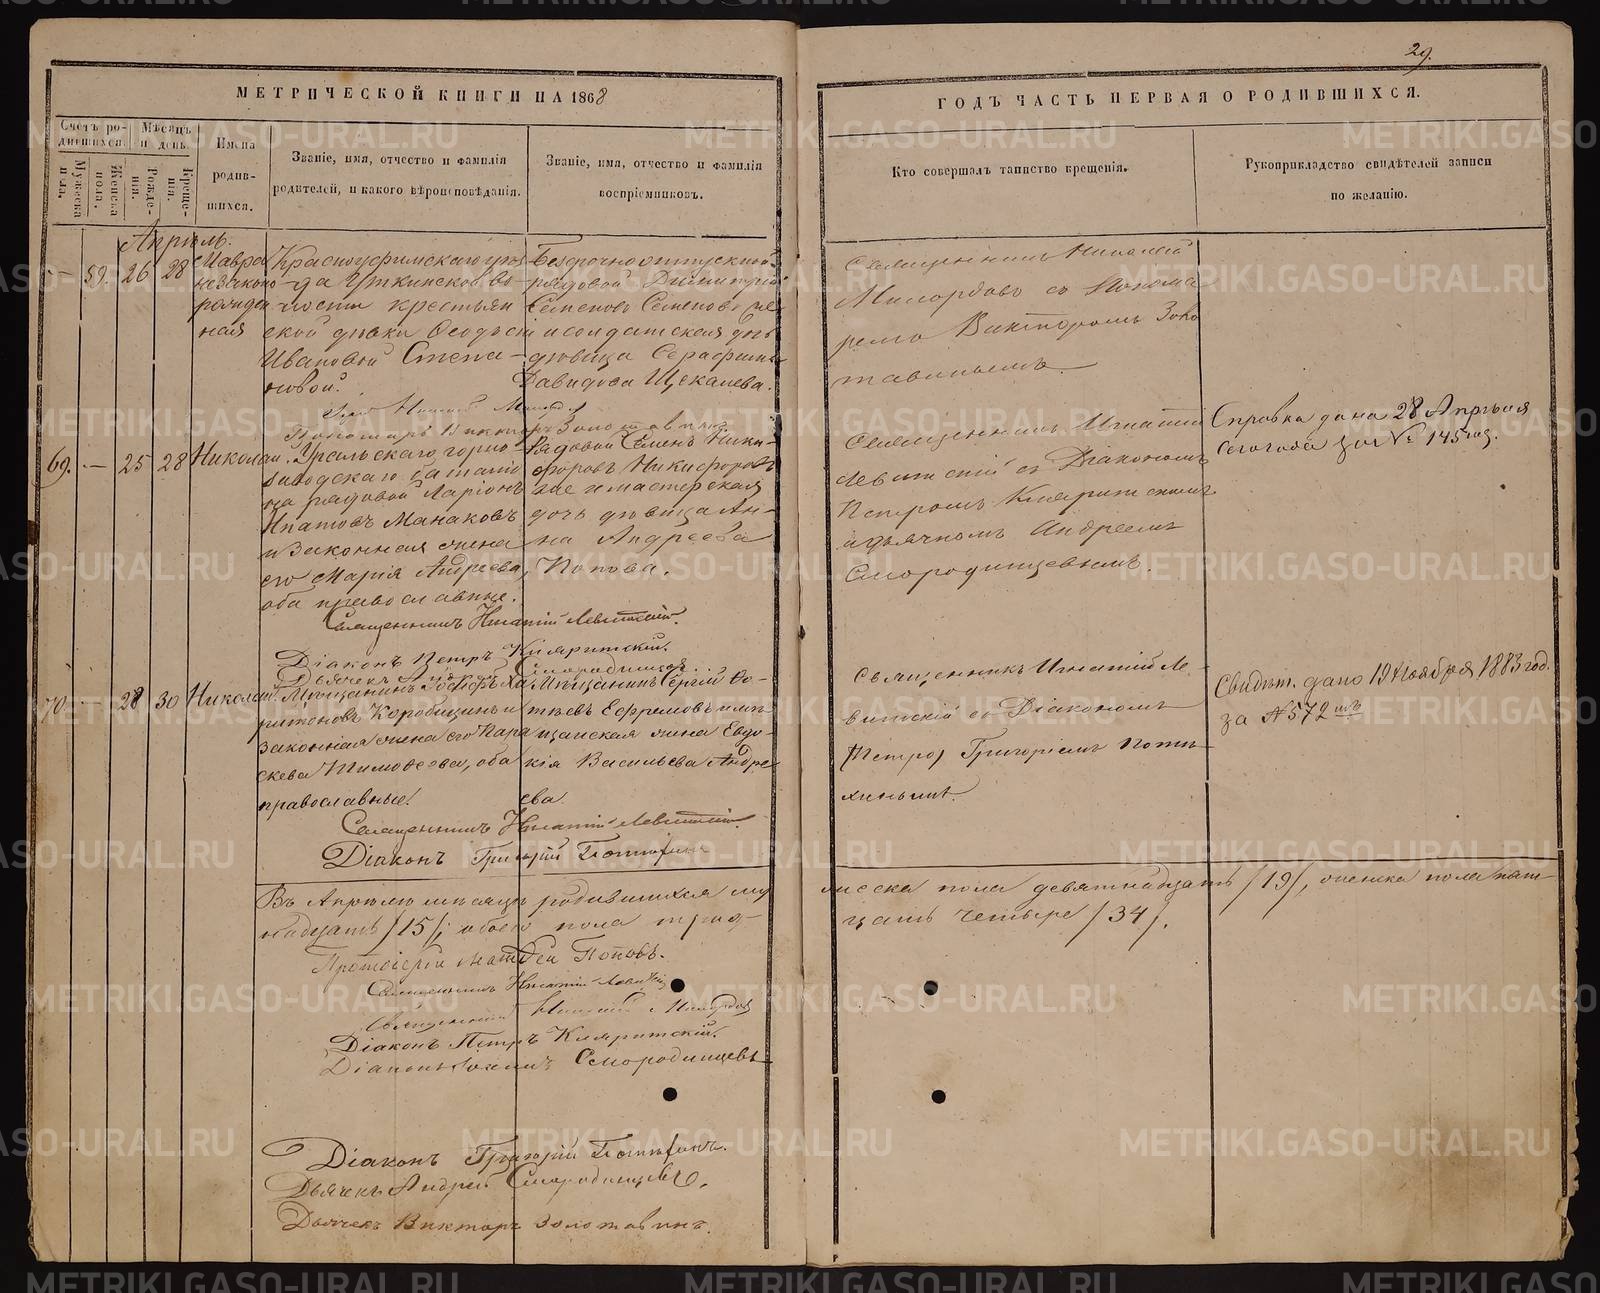 29.
МЕТРИЧЕСКОЙ КНИГИ НА 1868
ГОДЪ ЧАСТЬ ПЕРВАЯ О РОДИВШИХСЯ.
Счетъ родившихся.
Мужеска пола.
Женска пола.
Мѣсяцъ и день.
Рожденія.
Крещенія.
Имена
родив-
шихся.
Званіе, имя, отчество и фамилія
родителей, и какого вѣроисповѣданія.
Званіе, имя, отчество и фамилія
воспріемниковъ.
Кто совершалъ таинство крещенія.
Рукоприкладство свидѣтелей записи
по желанію.
Апрѣль.
— 59. 26 28
Мавра
незаконно
рожден
ная
Красноуфимскаго уѣз
да Уткинской во
лости крестьян
ской дѣвки Ѳеодосіи
Ивановой Степа-
новой.
Безсрочноотпускной
рядовой Димитрій
Семеновъ Семеновъ
и солдатская дочь
дѣвица Серафима
Давидова Щекалева.
Священникъ Николай
Милордовъ съ Понома
ремъ Викторомъ Золо
тавинымъ.
Пономарь Викторъ Золотавинъ.
69. — 25 28
Николай.
Уральскаго горно-
заводскаго баталіо
на рядовой Ларіонъ
Ипатовъ Манаковъ
и законная жена
его Марія Андреева,
оба православные.
Рядовой Семенъ Ники-
форовъ Никифоровъ
и мастерская
дочь дѣвица Ан-
на Андреева
Попова.
Священникъ Игнатій
Левитскій съ Діакономъ
Петромъ Кляритскимъ
и дьячкомъ Андреемъ
Смородинцевымъ.
Справка дана 28 Апрѣля
сего года за № 145
Священникъ Игнатій Левитскій.
Діаконъ Петръ Кляритскій.
70. — 28 30
Николай.
Мѣщанинъ Іосифъ Ха
ритоновъ Коробицынъ и
законная жена его Пара
скева Тимоѳеева, оба
православные.
Мѣщанинъ Сергій Ѳо-
тѣевъ Ефремовъ и мѣ
щанская жена Евдо-
кія Васильева Андре
ева.
Священникъ Игнатій Ле-
витскій съ Діакономъ
(Петро) Григоріемъ Поты
хинымъ.
Свидѣт. дано 19 Ноября 1883 год.
за № 572
Священникъ Игнатій Левитскій.
Діаконъ Григорій
Въ Апрѣлѣ мѣсяцѣ родившихся му
жеска пола девятнадцать /19/, женска пола пят-
надцать /15/, обоего пола трид-
цать четыре /34/.
Протоіерей Матѳей Поповъ.
Священникъ Игнатій Левитскій
Священникъ Николай Милордовъ
Діаконъ Петръ Кляритскій.
Діаконъ Смородинцевъ
Діаконъ Григорій
Дьячекъ Андрей Смородинцевъ.
Дьячекъ Викторъ Золотавинъ.
METRIKI.GASO-URAL.RU